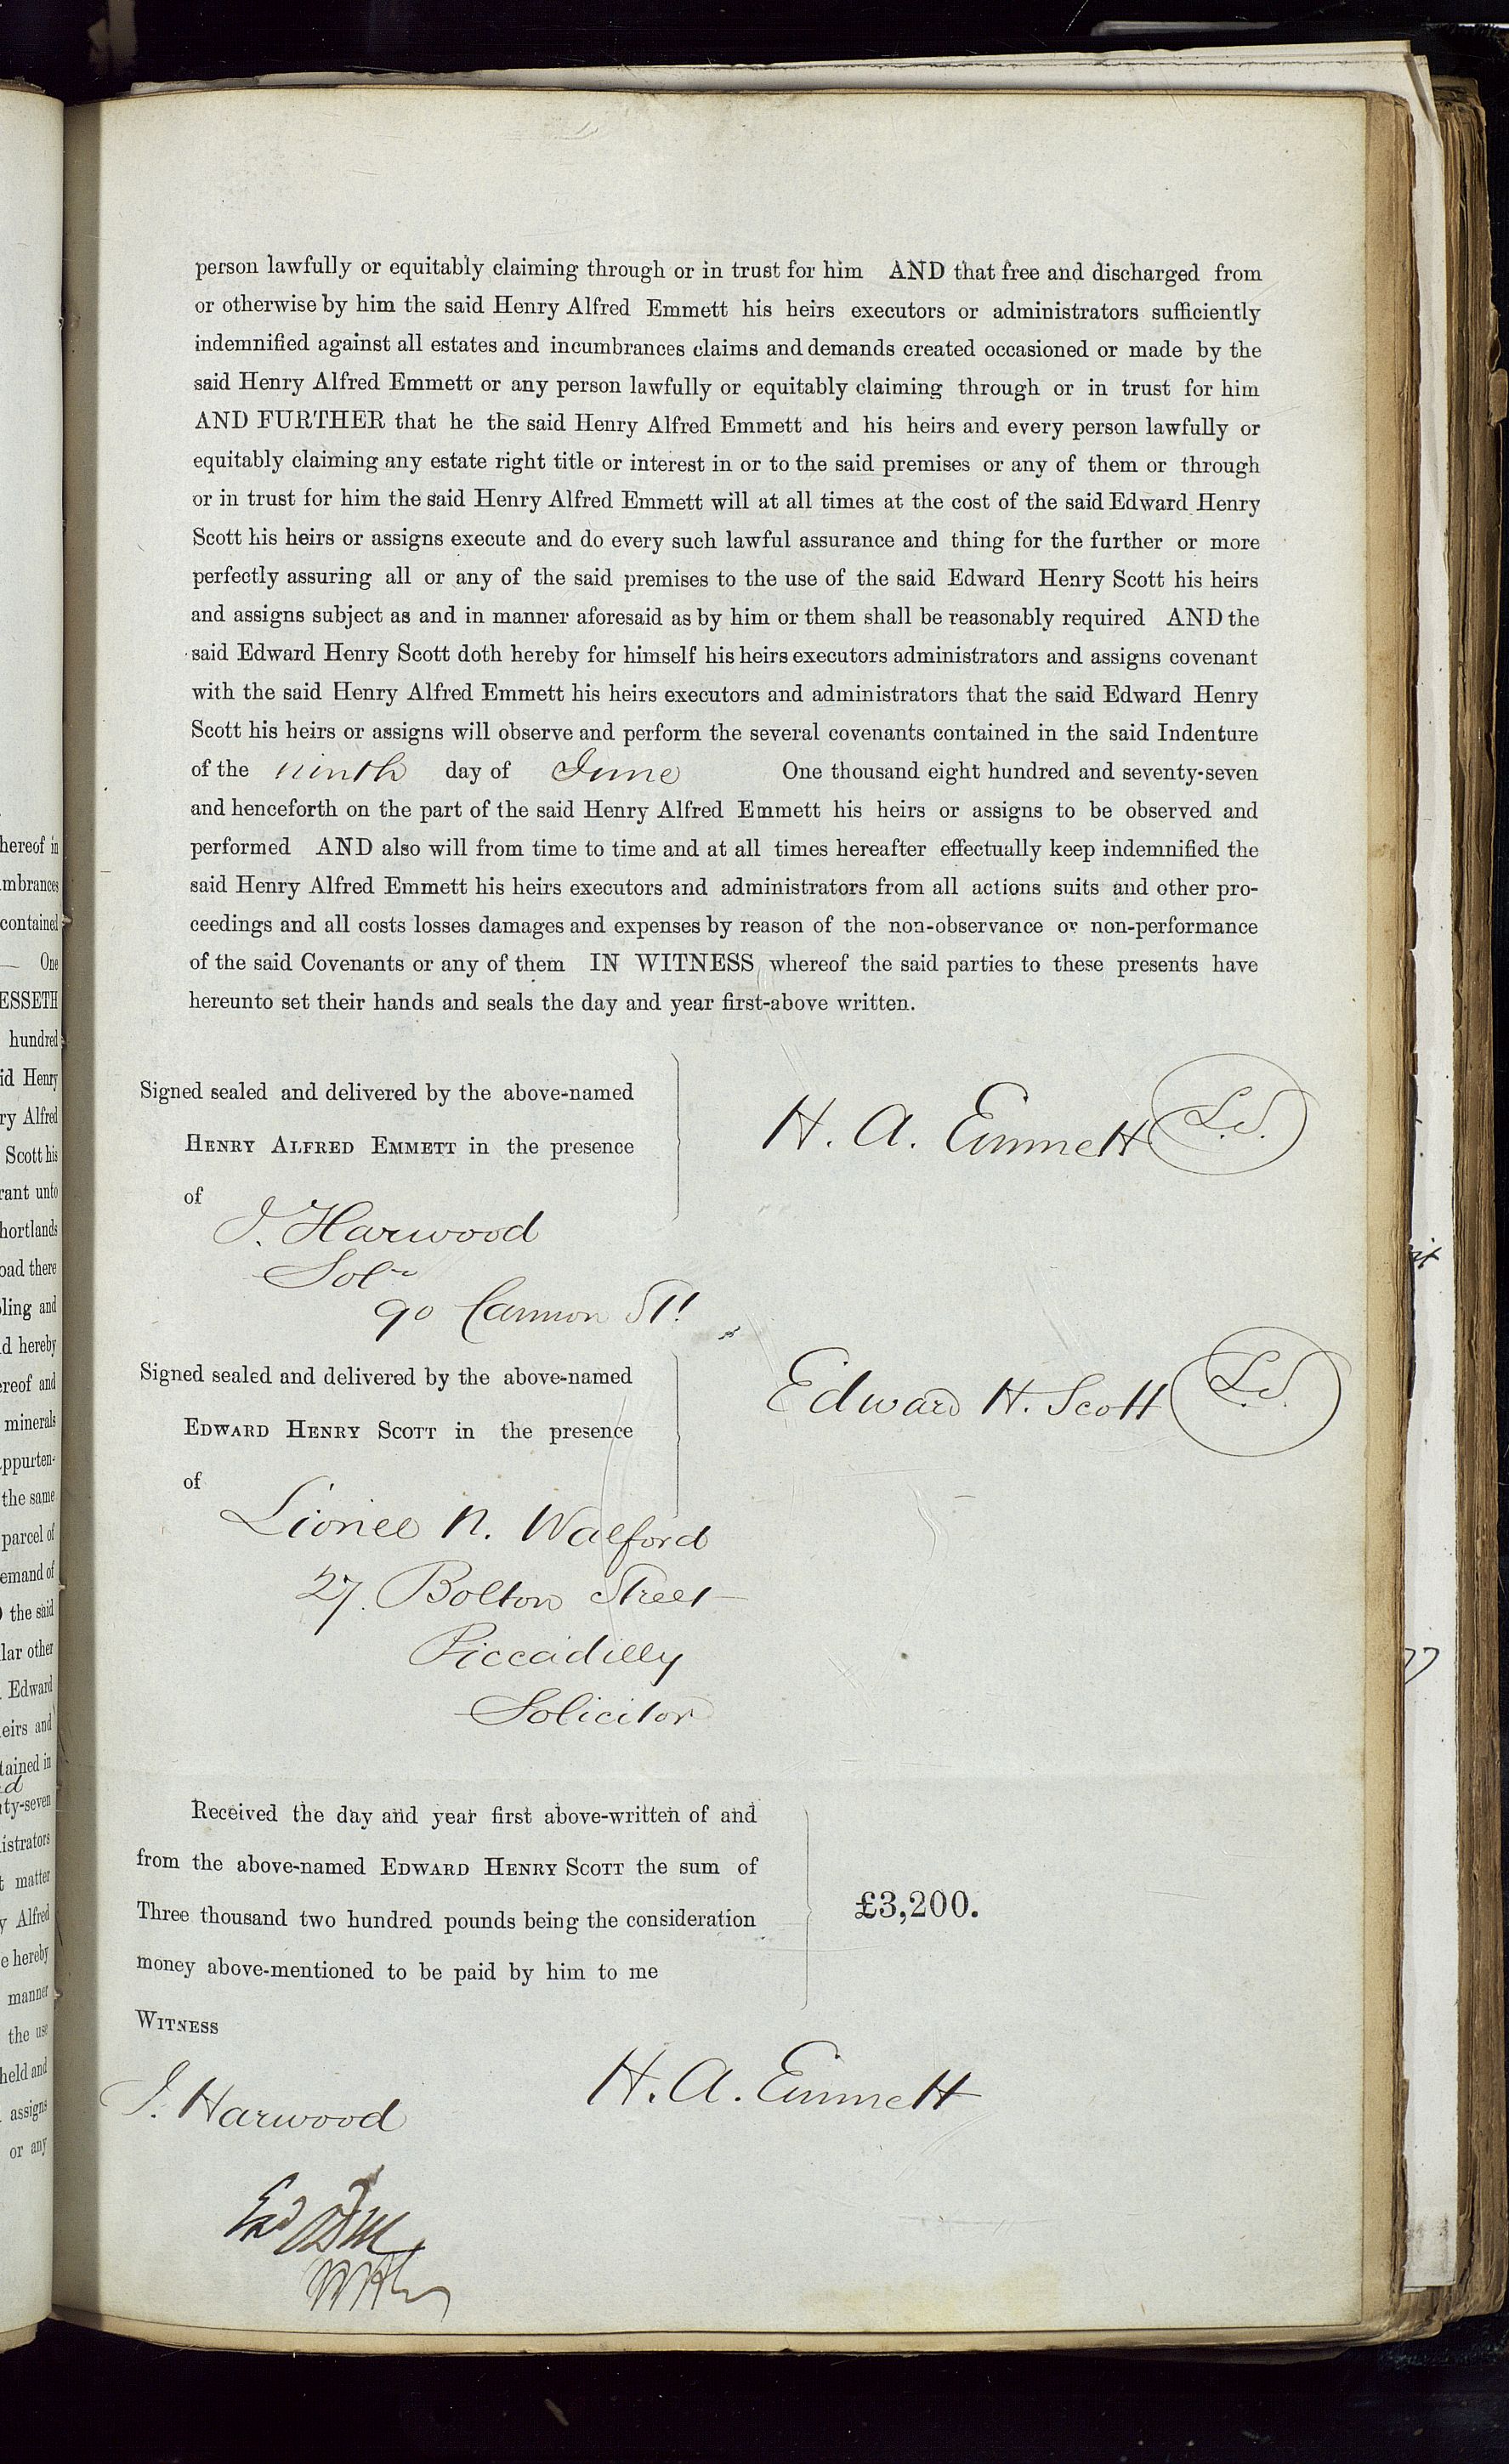 person lawfully or equitably claiming through or in trust for him AND that free and discharged from
or otherwise by him the said Henry Alfred Emmett his heirs executors or administrators sufficiently
indemnified against all estates and incumbrances claims and demands created occasioned or made by the
said Henry Alfred Emmett or any person lawfully or equitably claiming through or in trust for him
AND FURTHER that he the said Henry Alfred Emmett and his heirs and every person lawfully or
equitably claiming any estate right title or interest in or to the said premises or any of them or through
or in trust for him the said Henry Alfred Emmett will at all times at the cost of the said Edward Henry
Scott his heirs or assigns execute and do every such lawful assurance and thing for the further or more
perfectly assuring all or any of the said premises to the use of the said Edward Henry Scott his heirs
and assigns subject as and in manner aforesaid as by him or them shall be reasonably required AND the
said Edward Henry Scott doth hereby for himself his heirs executors administrators and assigns covenant
with the said Henry Alfred Emmett his heirs executors and administrators that the said Edward Henry
Scott his heirs or assigns will observe and perform the several covenants contained in the said Indenture
of the ninth day of June One thousand eight hundred and seventy-seven
and henceforth on the part of the said Henry Alfred Emmett his heirs or assigns to be observed and
performed AND also will from time to time and at all times hereafter effectually keep indemnified the
said Henry Alfred Emmett his heirs executors and administrators from all actions suits and other pro-
ceedings and all costs losses damages and expenses by reason of the non-observance or non-performance
of the said Covenants or any of them IN WITNESS whereof the said parties to these presents have
hereunto set their hands and seals the day and year first-above written.
Signed sealed and delivered by the above-named
HENRY ALFRED EMMETT in the presence
of
H. A. Emmett L.S.
J. Harwood
Solr
90 Cannon St.
Signed sealed and delivered by the above-named
EDWARD HENRY SCOTT in the presence
of
Edward H. Scott L.S.
Lionel N. Walford
27. Bolton Street
Piccadilly
Solicitor
Received the day and year first above-written of and
from the above-named EDWARD HENRY SCOTT the sum of
Three thousand two hundred pounds being the consideration
money above-mentioned to be paid by him to me
£3,200.
WITNESS
J. Harwood
H. A. Emmett
hereof in
mbrances
contained
One
ESSETH
hundred
id Henry
ry Alfred
Scott his
rant unto
hortlands
oad there
ling and
d hereby
ereof and
minerals
ppurten-
the same
parcel of
emand of
the said
lar other
Edward
eirs and
tained in
ty-seven
istrators
t matter
y Alfred
e hereby
manner
the use
held and
assigns
or any